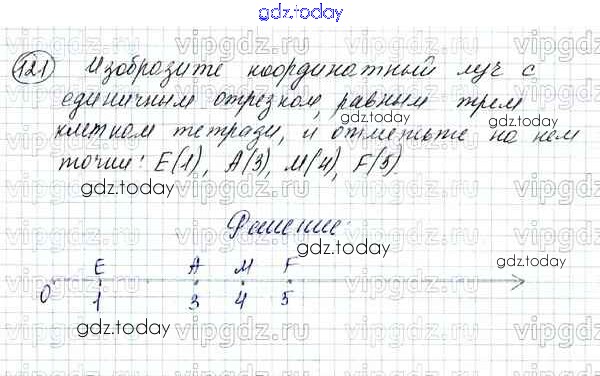 gdz.today
121 Изобразите координатный луч с
единичным отрезком, равным трем
клеткам тетради, и отметьте на нем
точки: E(1), A(3), M(4), F(5).
gdz.today
gdz.today
Решение:
gdz.today
gdz.today
E A M F
0 1 3 4 5
gdz.today
vipgdz.ru vipgdz.ru vipgdz.ru